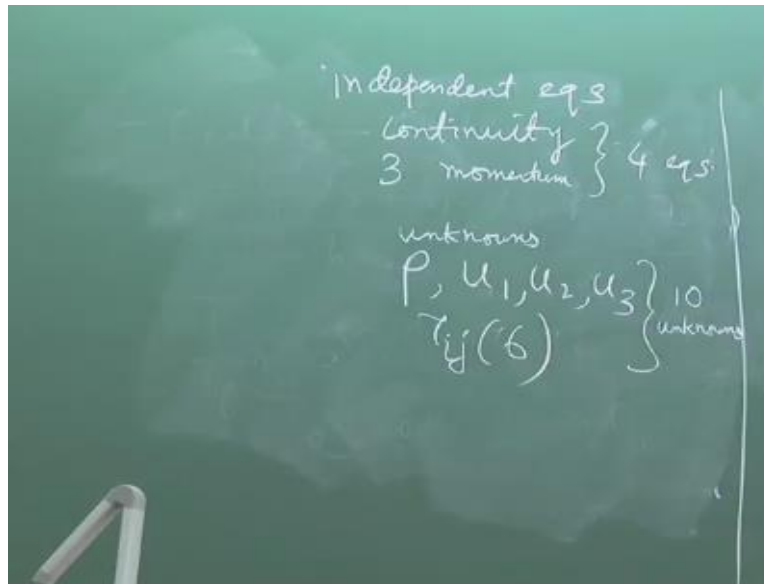 independent eqs
continuity
3 momentum } 4 eqs.
unknowns
ρ, u₁, u₂, u₃ } 10 unknowns
τij (6)